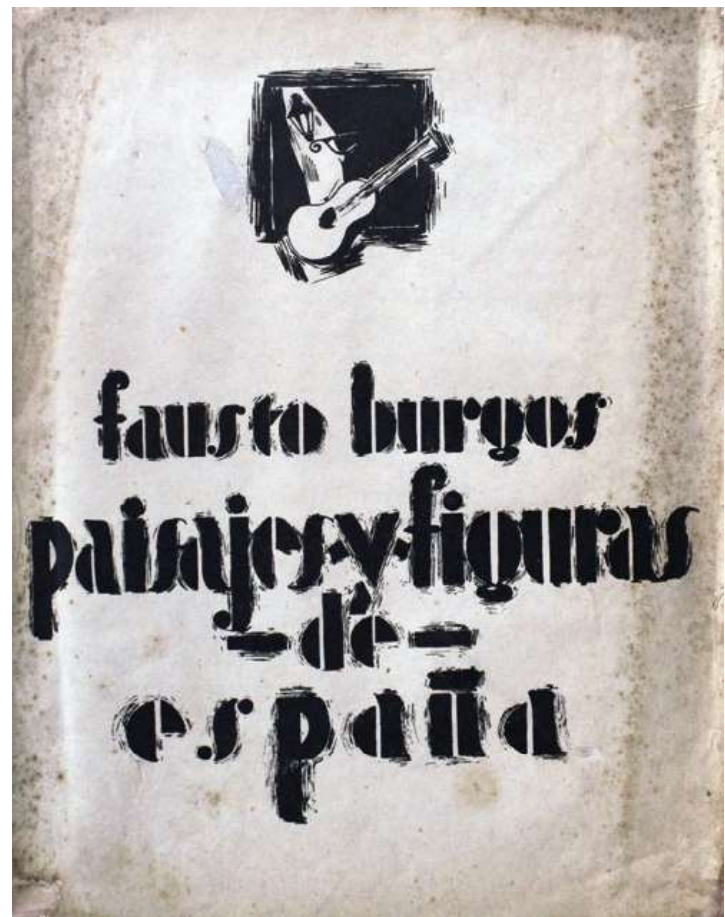 fausto burgos
paisajes·y·figuras
-de-
españa